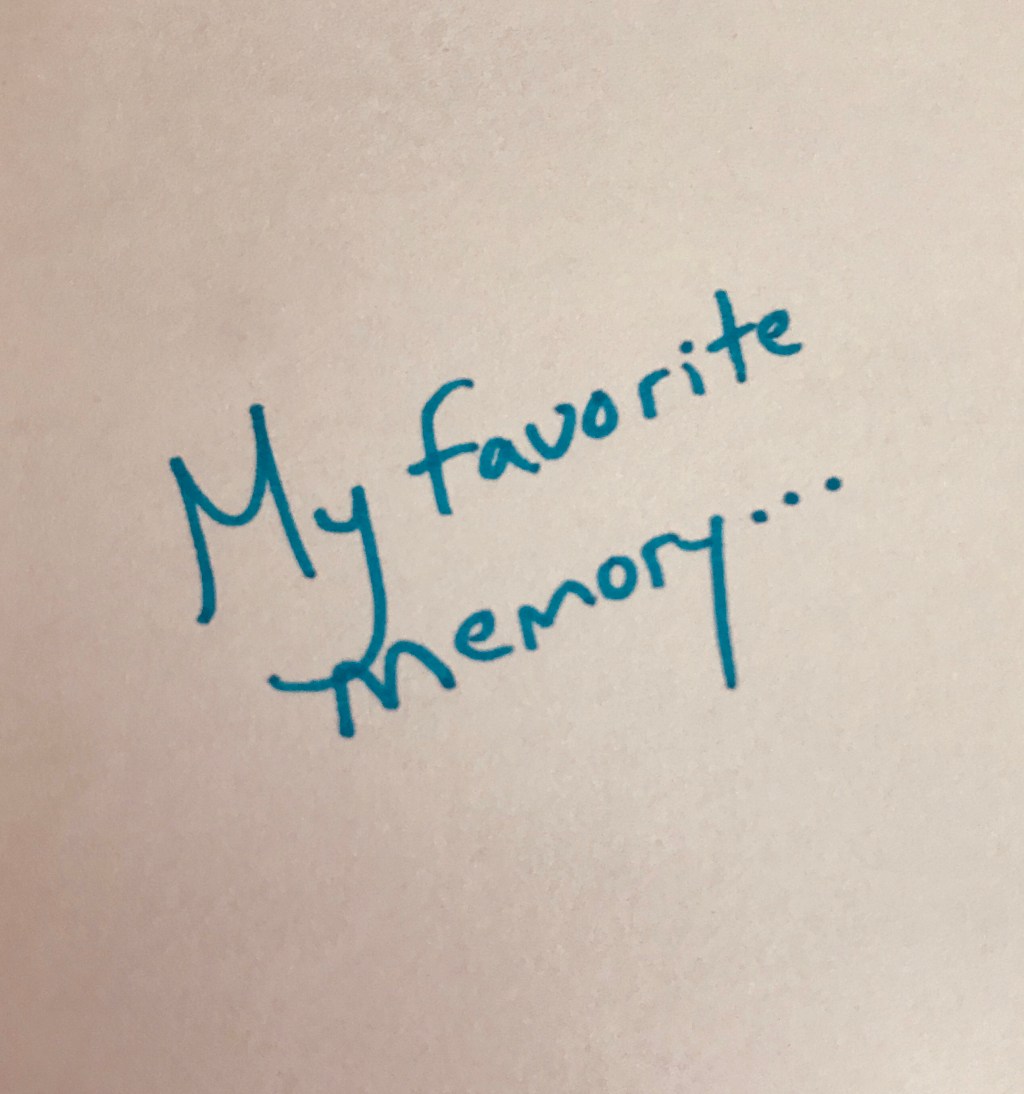 My favorite
memory...